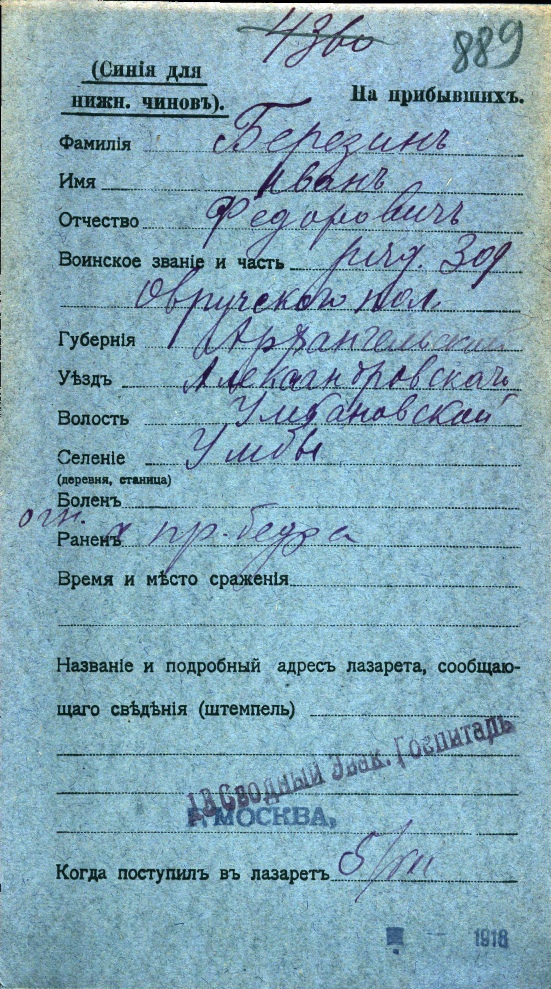 4360
889
(Синія для
нижн. чиновъ).
На прибывшихъ.
Фамилія Березинъ
Имя Иванъ
Отчество Федоровичъ
Воинское званіе и часть ряд. 309
Овручскаго пол.
Губернія Архангельской
Уѣздъ Александровскаго
Волость Умбановской
Селеніе Умбы
(деревня, станица)
Боленъ
огн.
Раненъ пр. бедра
Время и мѣсто сраженія
Названіе и подробный адресъ лазарета, сообщаю-
щаго свѣдѣнія (штемпель)
Сводный Эвак. Госпиталь
Г. МОСКВА,
Когда поступилъ въ лазаретъ 5/VII
1916